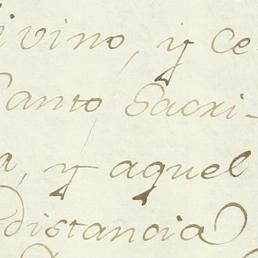 ivino, y Ce
Santo Sacri-
a, y aquel
distancia